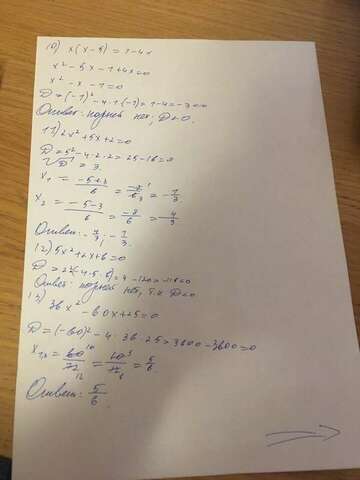 10) x(x-5)=1-4x
x²-5x-1+4x=0
x²-x-1=0
D=(-1)²-4·1·(-1)=1-4=-3<0
Ответ: корней нет, D<0.
11) 2x²+5x+2=0
D=5²-4·2·2=25-16=9
√D=3.
x₁ = -5+3/6 = -2¹/6₃ = -1/3
x₂ = -5-3/6 = -8/6 = -4/3
Ответ: -4/3; -1/3.
12) 5x²+2x+6=0
D=2²-4·5·6=4-120=-116<0
Ответ: корней нет, т.к D<0
13)
36x²-60x+25=0
D=(-60)²-4·36·25=3600-3600=0
x₁,₂=60¹⁰/72₁₂=10⁵/12₆=5/6.
Ответ: 5/6